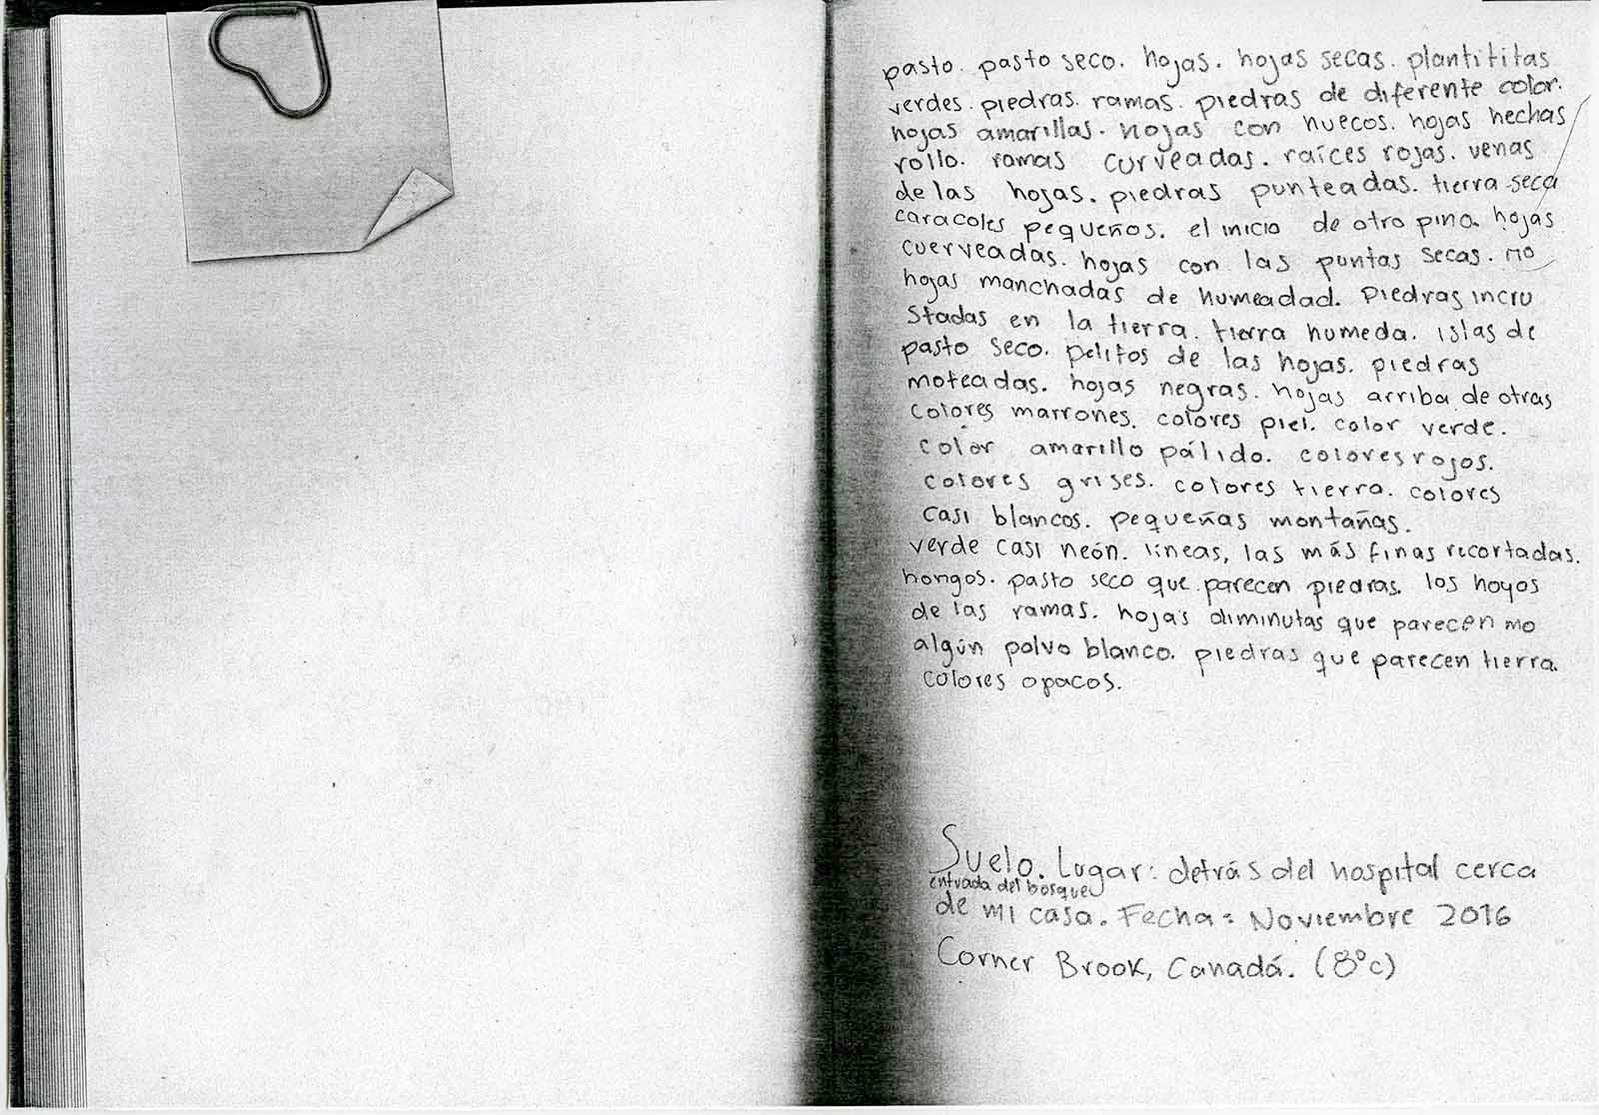 pasto. pasto seco. hojas. hojas secas. plantititas
verdes. piedras. ramas. piedras de diferente color.
hojas amarillas. hojas con huecos. hojas hechas
rollo. ramas curveadas. raíces rojas. venas
de las hojas. piedras punteadas. tierra seca
caracoles pequeños. el inicio de otro pino. hojas
cuerveadas. hojas con las puntas secas. mo
hojas manchadas de humeadad. Piedras incru
stadas en la tierra. tierra humeda. islas de
pasto seco. pelitos de las hojas. piedras
moteadas. hojas negras. hojas arriba de otras
colores marrones. colores piel. color verde.
color amarillo pálido. colores rojos.
colores grises. colores tierra. colores
casi blancos. pequeñas montañas.
verde casi neón. líneas, las más finas recortadas.
hongos. pasto seco que parecen piedras. los hoyos
de las ramas. hojas diminutas que parecen mo
algún polvo blanco. piedras que parecen tierra.
colores opacos.
Suelo. Lugar: detrás del hospital cerca
entrada del bosque
de mi casa. Fecha: Noviembre 2016
Corner Brook, Canadá. (8°c)